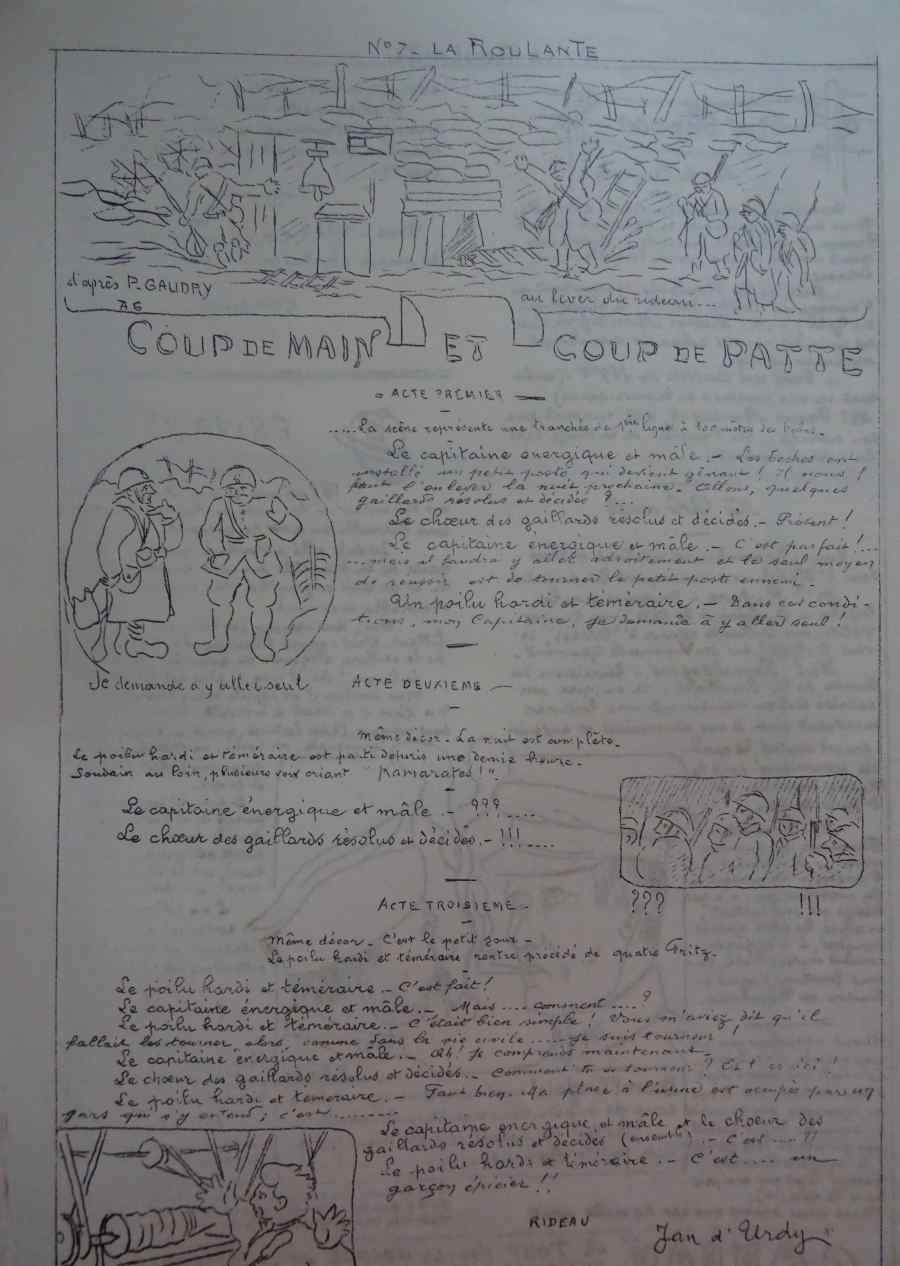 N° 7 - LA ROULANTE
d'après P. GAUDRY
AG
au lever du rideau...
COUP DE MAIN ET COUP DE PATTE
ACTE PREMIER
.....La scène représente une tranchée de 1ère ligne à 100 mètres des boches.
Le capitaine énergique et mâle.- Les boches ont
installé un petit poste qui devient gênant! Il nous!
faut l'enlever la nuit prochaine. Allons, quelques
gaillards résolus et décidés ?...
Le chœur des gaillards résolus et décidés.- Présent!
Le capitaine énergique et mâle.- C'est parfait!...
...mais il faudra y aller adroitement et le seul moyen
de réussir est de tourner le petit poste ennemi.
Un poilu hardi et téméraire.- Dans ces condi-
tions, mon Capitaine, je demande à y aller seul!
Je demande à y aller seul
ACTE DEUXIEME
Même décor. La nuit est complète.
Le poilu hardi et téméraire est parti depuis une demie heure.
Soudain au loin, plusieurs voix criant "Kamarates!".
Le capitaine énergique et mâle.- ???....
Le chœur des gaillards résolus et décidés.- !!!....
??? !!!
ACTE TROISIEME
Même décor. C'est le petit jour-
Le poilu hardi et téméraire rentre précédé de quatre Fritz.
Le poilu hardi et téméraire.- C'est fait!
Le capitaine énergique et mâle.- Mais .... comment ....?
Le poilu hardi et téméraire.- C'était bien simple! Vous m'aviez dit qu'il
fallait les tourner, alors, comme dans la vie civile ..... je suis tourneur!
Le capitaine énergique et mâle.- Ah! Je comprends maintenant-
Le chœur des gaillards résolus et décidés.- Comment tu es tourneur? et es ici!
Le poilu hardi et téméraire.- Faut bien. Ma place à l'usine est occupée par un
gars qui s'y entend; c'est ........
Le capitaine énergique et mâle et le chœur des
gaillards résolus et décidés (ensemble).- C'est ....??
Le poilu hardi et téméraire.- C'est .... un
garçon épicier!!
RIDEAU
Jan d'Urdy